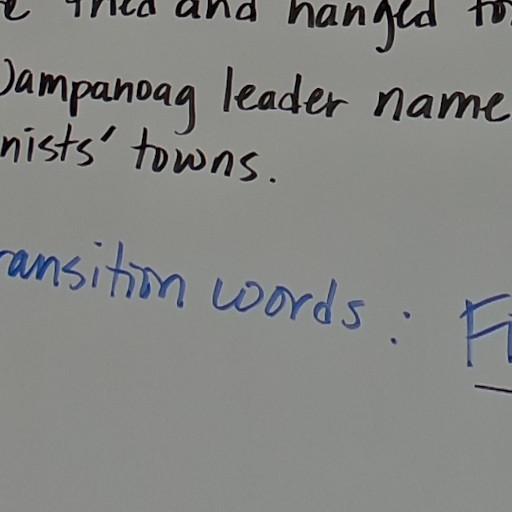 tried and hanged
Wampanoag leader name
nists' towns.
ransition words: Fi